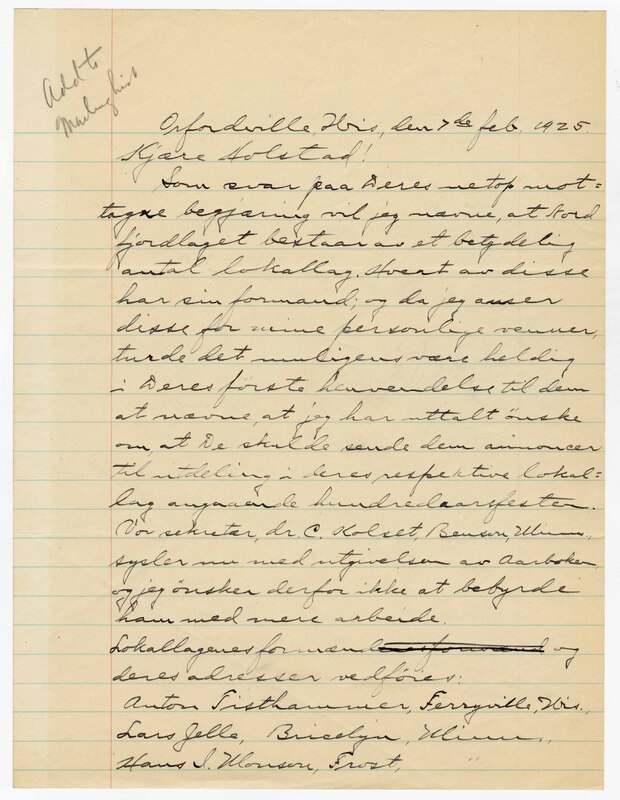 Add to
Mailing list
Orfordville, Wis, den 7de feb. 1925.
Kjære Holstad!
Som svar paa Deres netop mot=
tagne begjæring vil jeg nævne, at Nord
fjordlaget bestaar av et betydelig
antal lokallag. Hvert av disse
har sin formand; og da jeg anser
disse for mine personlige venner,
turde det muligens være heldig
i Deres første henvendelse til dem
at nævne, at jeg har uttalt ønske
om, at De skulde sende dem annoncer
til utdeling i deres respektive lokal=
lag angaaende hundredaarsfesten.
Vor sekretær, dr. C. Kolset, Benson, Minn.,
sysler nu med utgivelsen av Aarboken
og jeg ønsker derfor ikke at bebyrde
ham med mere arbeide.
Lokallagenes formænd og
deres adresser vedføies:
Anton Tisthammer, Ferryville, Wis.,
Lars Jelle, Bricelyn, Minn.,
Hans I. Monson, Frost, "